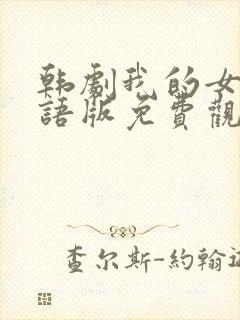 韩劇我的女
語版免費觀
查尔斯-約翰